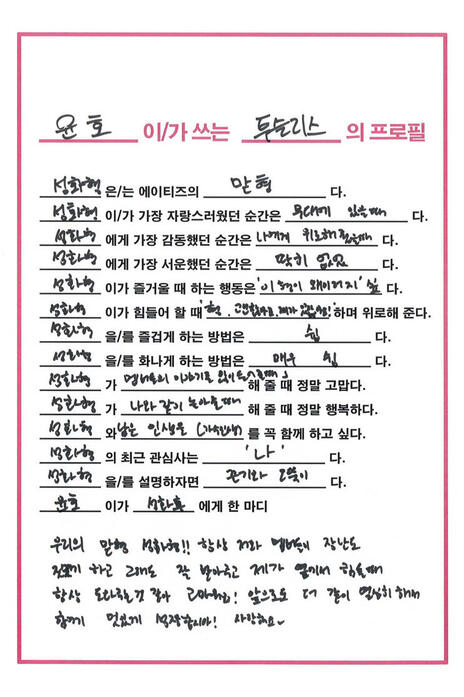 윤호 이/가 쓰는 투슬리스 의 프로필
성화형 은/는 에이티즈의 맏형 다.
성화형 이/가 가장 자랑스러웠던 순간은 무대에 있을때 다.
성화형 에게 가장 감동했던 순간은 나에게 위로해줬을때 다.
성화형 에게 가장 서운했던 순간은 딱히 없었 다.
성화형 이/가 즐거울 때 하는 행동은 '이 형이 왜이러지' 싶 다.
성화형 이/가 힘들어 할 때 '형, 하며 위로해 준다.
성화형 을/를 즐겁게 하는 방법은 쉽 다.
성화형 을/를 화나게 하는 방법은 매우 쉽 다.
성화형 가 멤버들의 이야기를 해 줄 때 정말 고맙다.
성화형 가 나와같이 놀아줄때 해 줄 때 정말 행복하다.
성화형 와 남은 인생을 를 꼭 함께 하고 싶다.
성화형 의 최근 관심사는 '나' 다.
성화형 을/를 설명하자면 끈기와 노력이 다.
윤호 이가 성화형 에게 한 마디
우리의 맏형 성화형!! 항상 저와 멤버들이 장난도
하고 그래도 잘 받아주고 제가 옆에서 힘들때
항상 도와주는것 같아 고마워요! 앞으로도 더 같이 열심히 해서
함께 멋있게 성장합시다! 사랑해요~